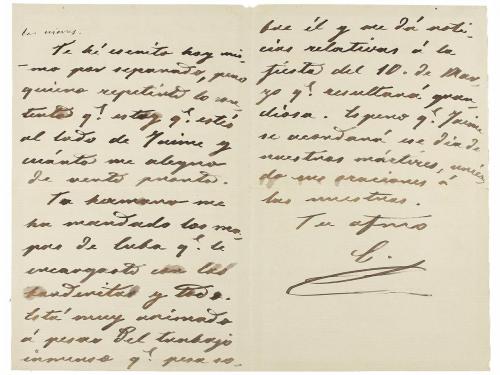 Te hé escrito hoy mis-
mo por separado, pero
quiero repetirte lo con-
tento q.e estoy q.e estés
al lado de Jaime y
cuánto me alegro
de verte pronto.
Tu hermano me
ha mandado los ma-
pas de Cuba q.e le
encargaste con las
banderitas y todo.
Está muy animado
á pesar del trabajo
inmenso q.e pesa so-
bre él y me dá noti-
cias relativas á la
fiesta del 10 de Mar-
zo q.e resultará gran-
diosa. Espero q.e Jaime
se acordará ese día de
nuestros mártires, unien-
do sus oraciones á
las nuestras.
Tu afmo
C.